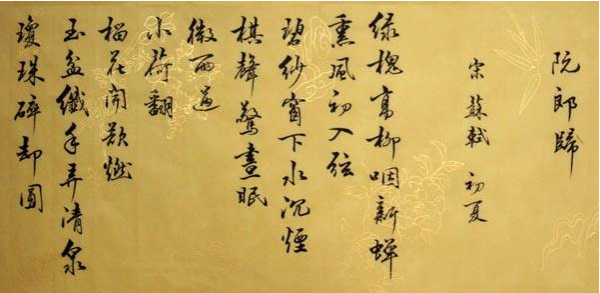 阮郎歸
宋 蘇軾 初夏
绿槐高柳咽新蟬
熏風初入弦
碧纱窗下水沉煙
棋聲驚晝眠
微雨過
小荷翻
榴花開欲燃
玉盆纖手弄清泉
瓊珠碎却圓